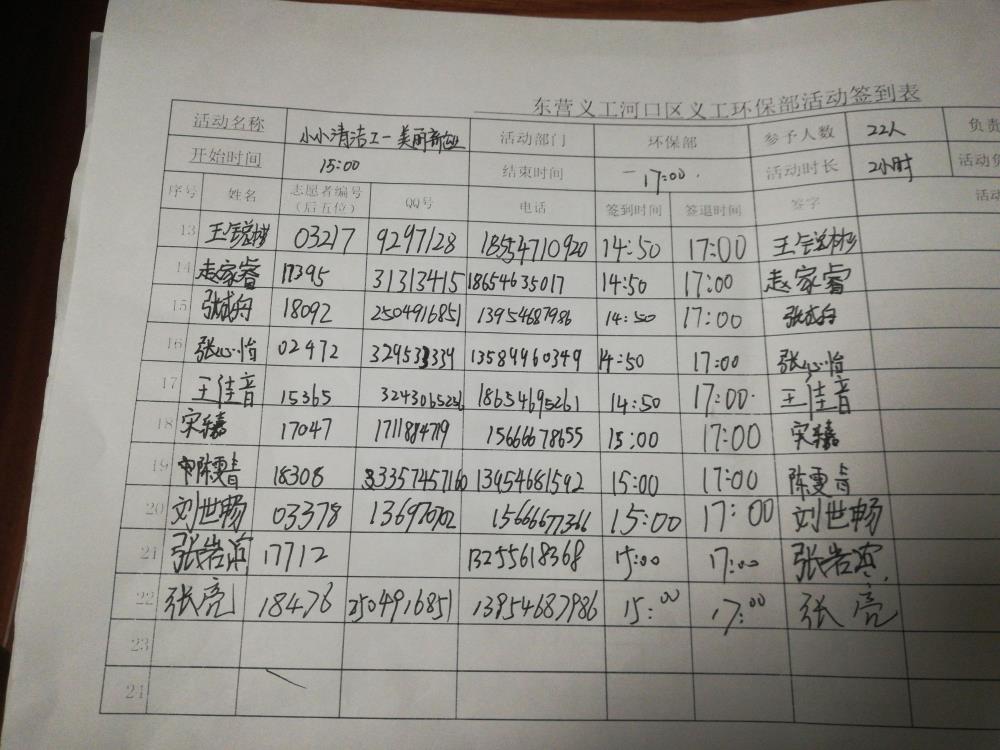 东营义工河口区义工环保部活动签到表
活动名称 小小清洁工一美丽新 活动部门 环保部 参予人数 22人 负责
开始时间 15:00 结束时间 17:00 活动时长 2小时 活动负
序号 姓名 志愿者编号（后五位） QQ号 电话 签到时间 签退时间 签字 活动
13 王 03217 9297128 18554710920 14:50 17:00 王
14 赵家睿 17395 313134415 18654635017 14:50 17:00 赵家睿
15 张 18092 2504916851 13954687986 14:50 17:00 张
16 张心怡 02472 13589960349 14:50 17:00 张心怡
17 王佳音 15365 3243065236 18654695261 14:50 17:00 王佳音
18 宋 17047 1711884719 15666678655 15:00 17:00 宋
19 陈雯卉 18308 3357457160 13954681592 15:00 17:00 陈雯卉
20 刘世畅 03378 136970702 15666677366 15:00 17:00 刘世畅
21 张岩滨 17712 13255618368 15:00 17:00 张岩滨
22 张亮 18476 2504916851 13954687986 15:00 17:00 张亮
23
24